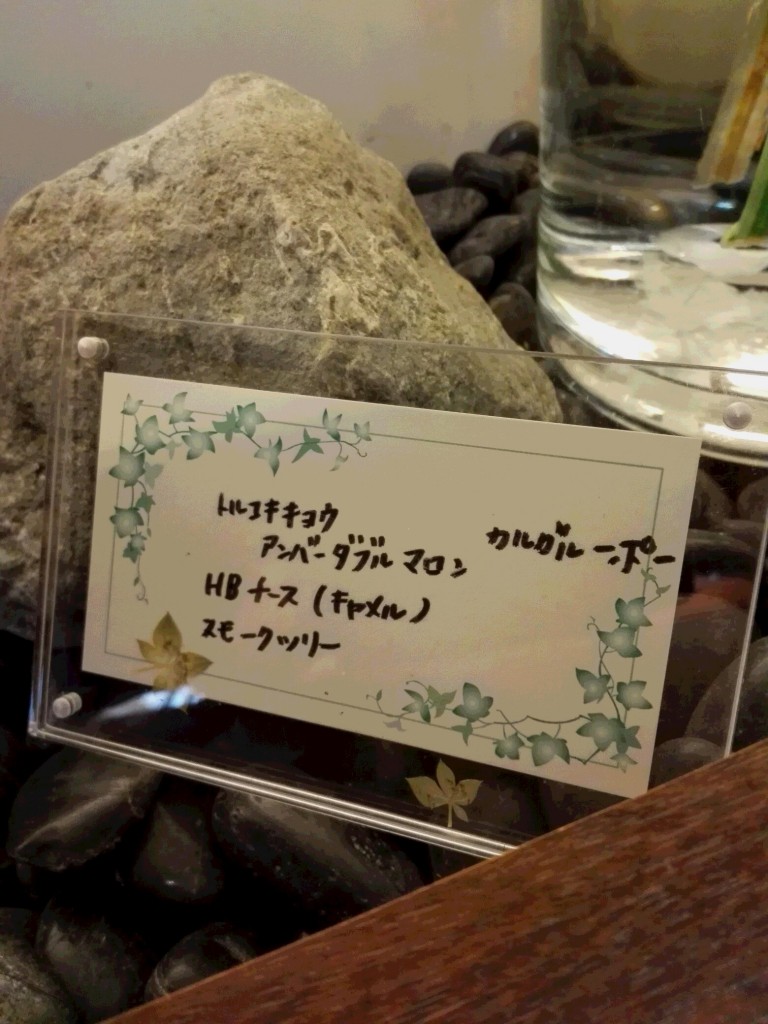 トルコキキョウ
アンバーダブルマロン
HBナース(キャメル)
スモークツリー
カルガルーポー